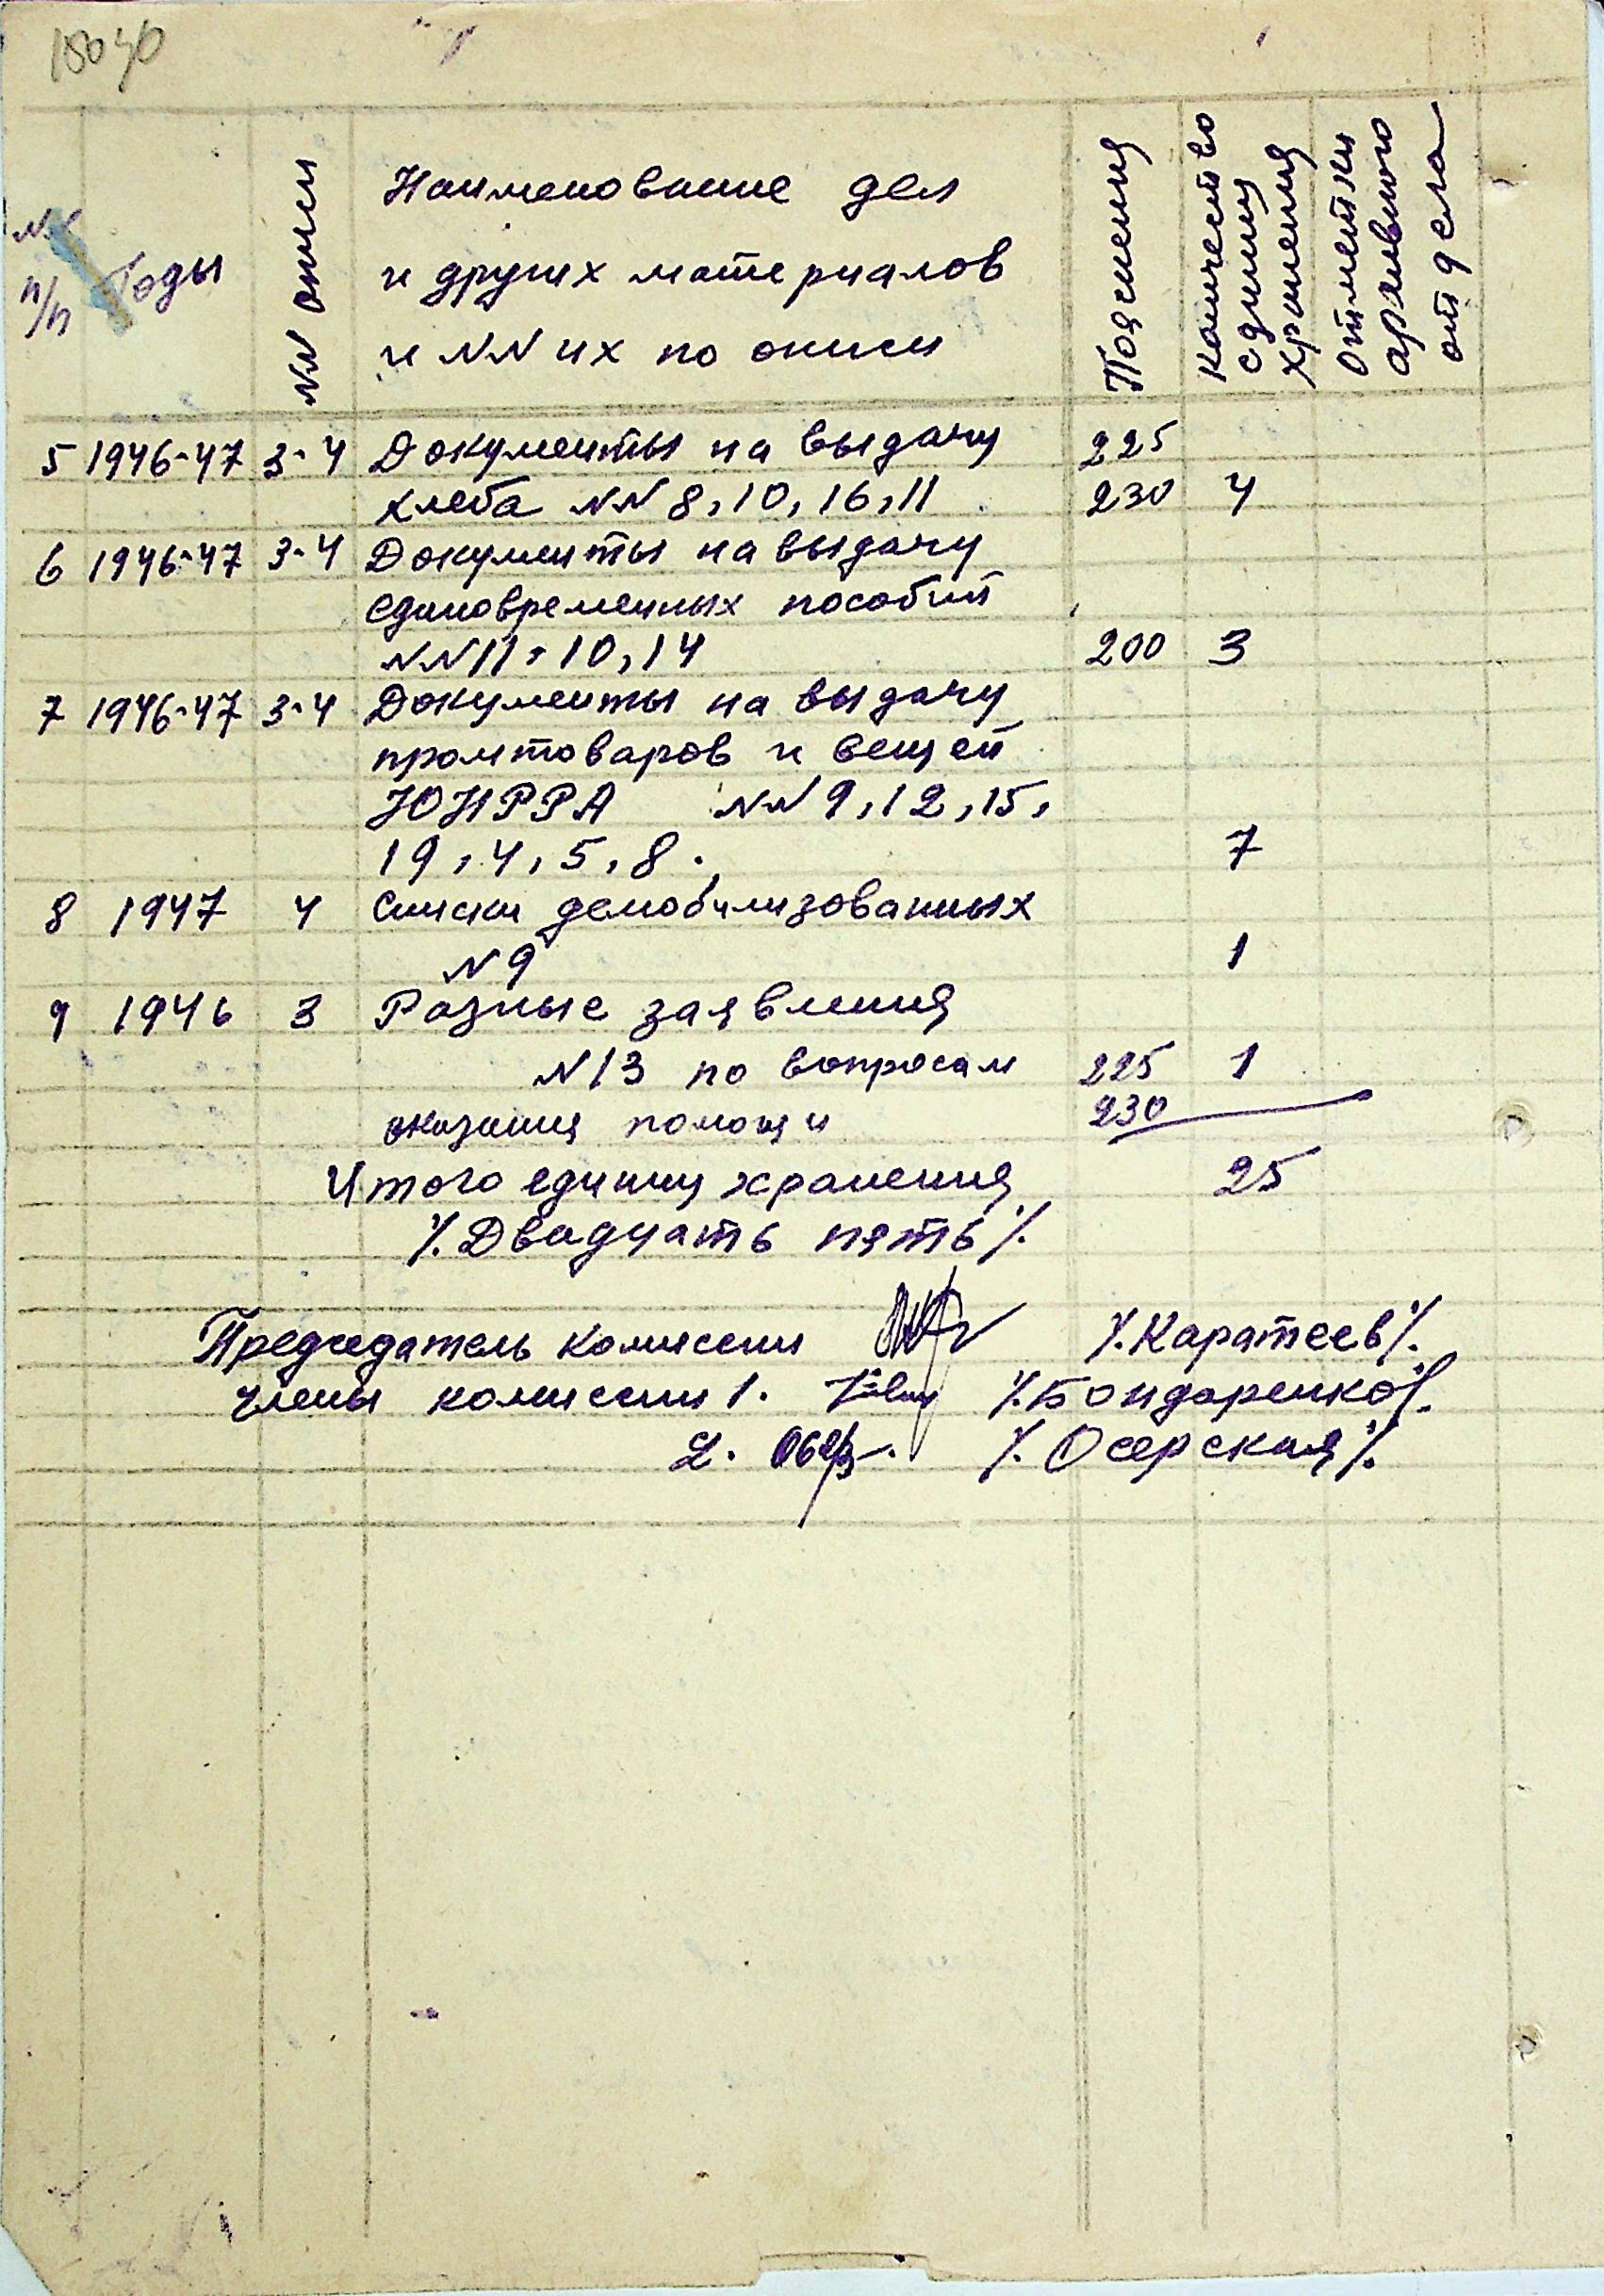 №№
п/п
Годы
NN описи
Наименование дел
и других материалов
и NN их по описи
Пояснения
Количество
единиц
хранения
Отметки
архивного
отдела
5 1946-47 3-4 Документы на выдачу 225
хлеба NN 8, 10, 16, 11 230 4
6 1946-47 3-4 Документы на выдачу
единовременных пособий
NN 11, 10, 14 200 3
7 1946-47 3-4 Документы на выдачу
промтоваров и вещей
ЮНРРА NN 9, 12, 15,
19, 4, 5, 8. 7
8 1947 4 Списки демобилизованных
N 9 1
9 1946 3 Разные заявления
N 13 по вопросам 225 1
оказания помощи 230
Итого единиц хранения 25
/. Двадцать пять /.
Председатель комиссии /. Каратеев /.
члены комиссии 1. /. Бондаренко /.
2. /. Осерская /.